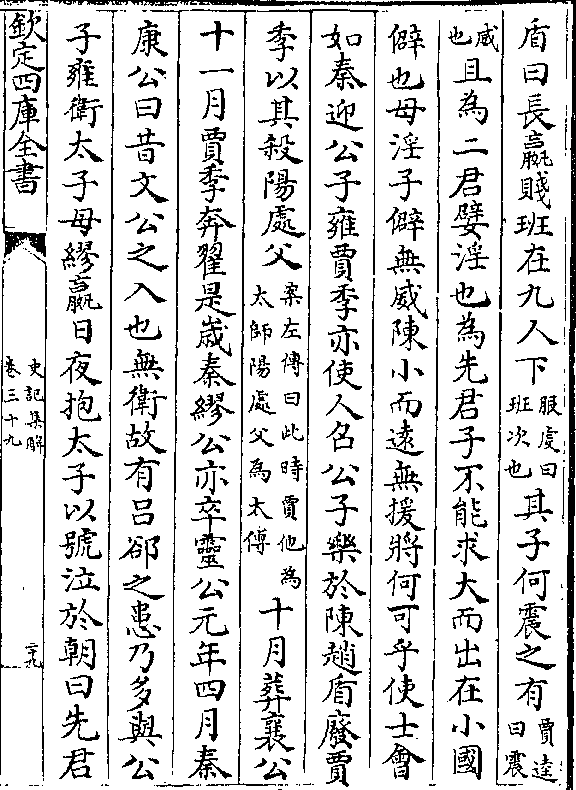 盾曰長嬴賤班在九人下服虔曰班次也其子何震之有賈逵曰震
威也且為二君嬖淫也為先君子不能求大而出在小國
僻也母淫子僻無威陳小而遠無援將何可乎使士會
如秦迎公子雍賈季亦使人召公子樂於陳趙盾廢賈
季以其殺陽處父案左傳曰此時賈他為太師陽處父為太傅十月葬襄公
十一月賈季奔翟是歲秦繆公亦卒靈公元年四月秦
康公曰昔文公之入也無衛故有呂郤之患乃多與公
子雍衛太子母繆嬴日夜抱太子以號泣於朝曰先君
欽定四庫全書
史記集解
卷三十九
二十九